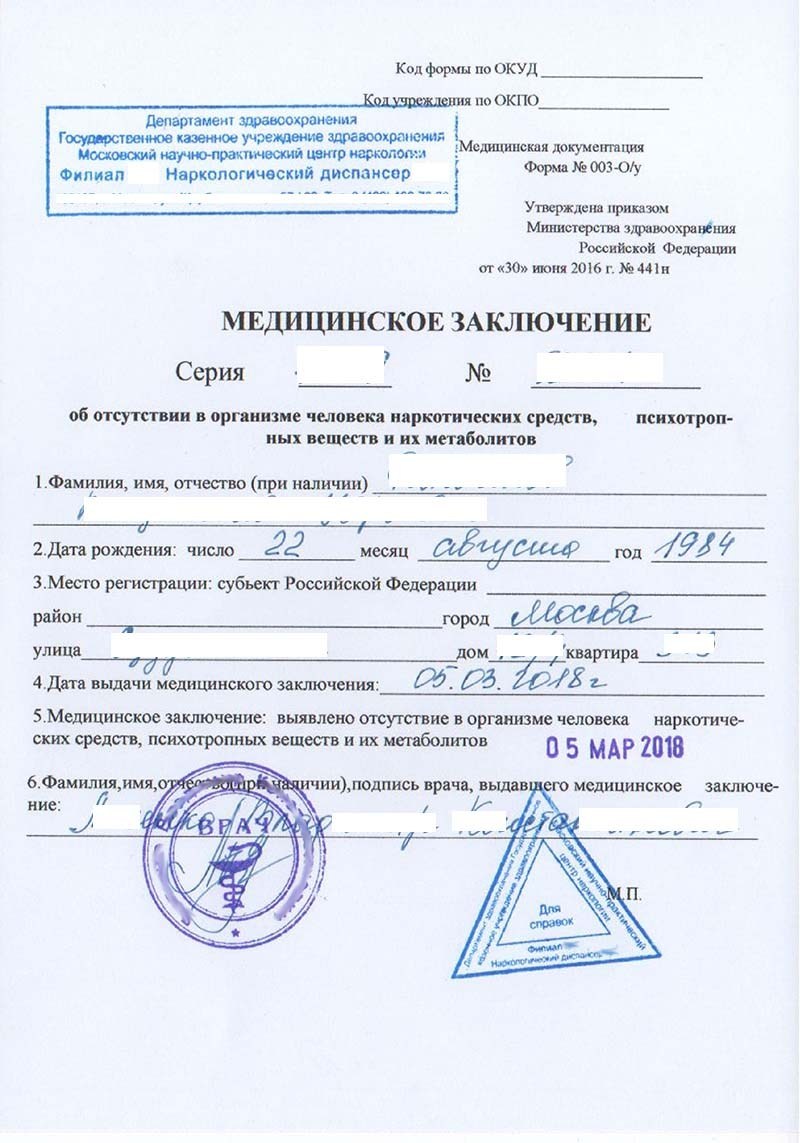 Код формы по ОКУД
Код учреждения по ОКПО
Департамент здравоохранения
Государственное казенное учреждение здравоохранения
Московский научно-практический центр наркологии
Филиал Наркологический диспансер
Медицинская документация
Форма № 003-О/у
Утверждена приказом
Министерства здравоохранения
Российской Федерации
от «30» июня 2016 г. № 441н
МЕДИЦИНСКОЕ ЗАКЛЮЧЕНИЕ
Серия №
об отсутствии в организме человека наркотических средств, психотроп-
ных веществ и их метаболитов
1.Фамилия, имя, отчество (при наличии)
2.Дата рождения: число 22 месяц августа год 1984
3.Место регистрации: субъект Российской Федерации
район город Москва
улица дом квартира
4.Дата выдачи медицинского заключения: 05.03.2018г
5.Медицинское заключение: выявлено отсутствие в организме человека наркотиче-
ских средств, психотропных веществ и их метаболитов
05 МАР 2018
6.Фамилия,имя,отчество(при наличии),подпись врача, выдавшего медицинское заключе-
ние:
ВРАЧ
М.П.
Для
справок
Департамент здравоохранения
казенное учреждение
Московский научно-практический
центр наркологии
Филиал
Наркологический диспансер